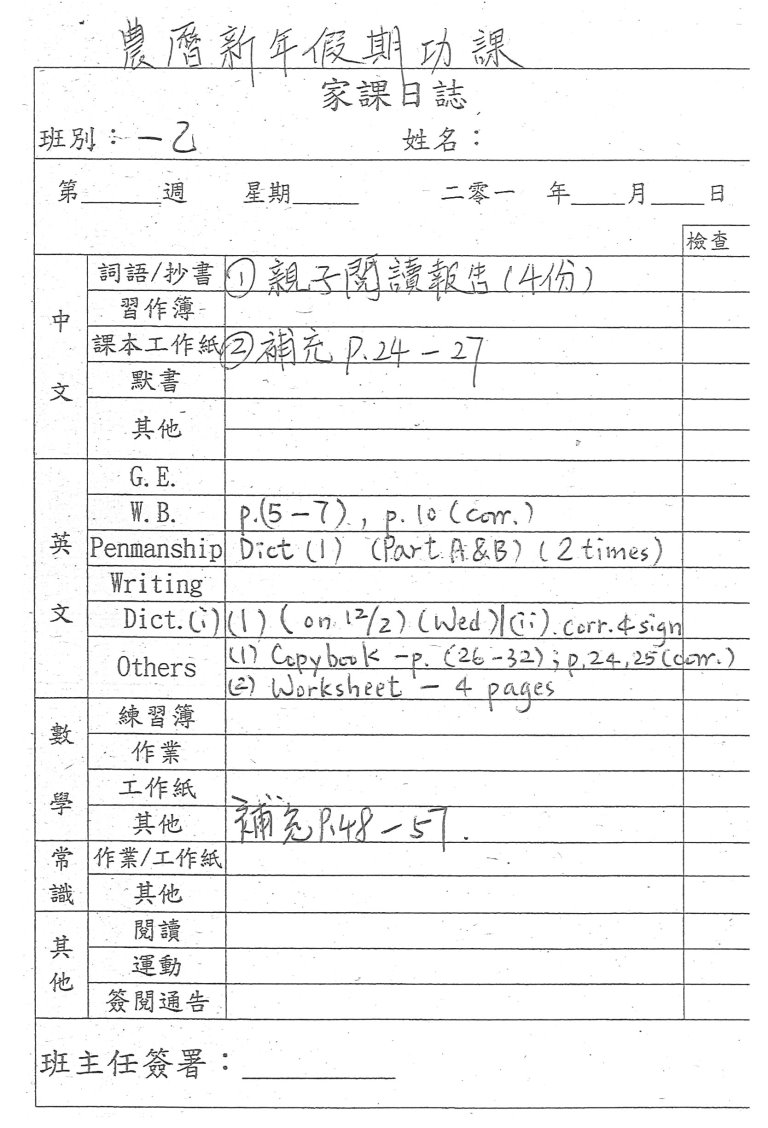 農曆新年假期功課
家課日誌
班別：一乙 姓名：
第______週 星期_____ 二零一 年____月____日
檢查
中文
詞語/抄書 ① 親子閱讀報告(4份)
習作簿
課本工作紙 ② 補充 P.24-27
默書
其他
英文
G.E.
W.B. p.(5-7), p.10 (corr.)
Penmanship Dict (1) (Part A&B) (2 times)
Writing
Dict. (i) (1) (on 12/2) (Wed) | (ii). corr. & sign
Others (1) Copybook - p. (26-32); p.24,25 (corr.)
(2) Worksheet - 4 pages
數學
練習簿
作業
工作紙
其他 補充P.48-57.
常識
作業/工作紙
其他
其他
閱讀
運動
簽閱通告
班主任簽署：__________